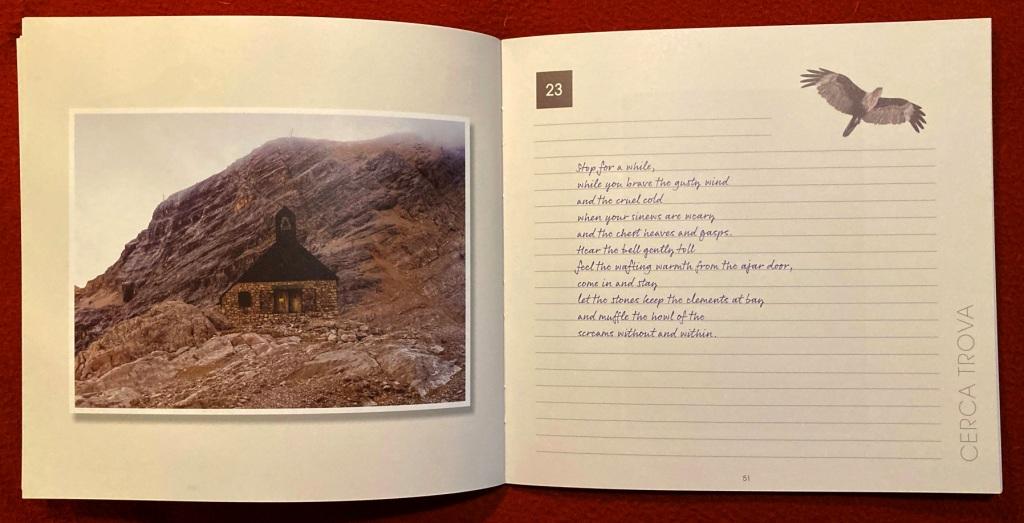 23
Stop for a while,
while you brave the gusty wind
and the cruel cold
when your sinews are weary
and the chest heaves and gasps.
Hear the bell gently toll
feel the wafting warmth from the ajar door,
come in and stay
let the stones keep the elements at bay
and muffle the howl of the
screams without and within.
CERCA TROVA
51